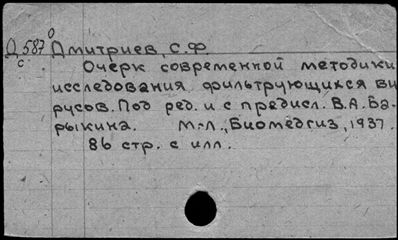 О
Д 587 Дмитриев, С.Ф.
с Очерк современной методики
исследования фильтрующихся ви
русов. Под ред. и с предисл. В.А. Ба-
рыкина. М.-Л., Биомедгиз, 1937.
86 стр. с илл.